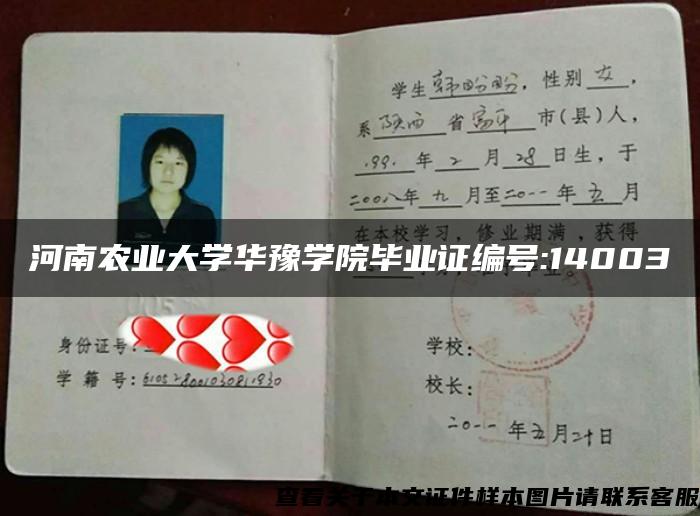 学生韩盼盼，性别女，
系陕西省富平市(县)人，
1991年2月28日生，于
二00八年九月至二0一一年五月
在本校学习，修业期满，获得
河南农业大学华豫学院毕业证编号:14003
身份证号:
学籍号:
学校:
校长:
二0一一年五月二十日
查看关于本文证件样本图片请联系客服